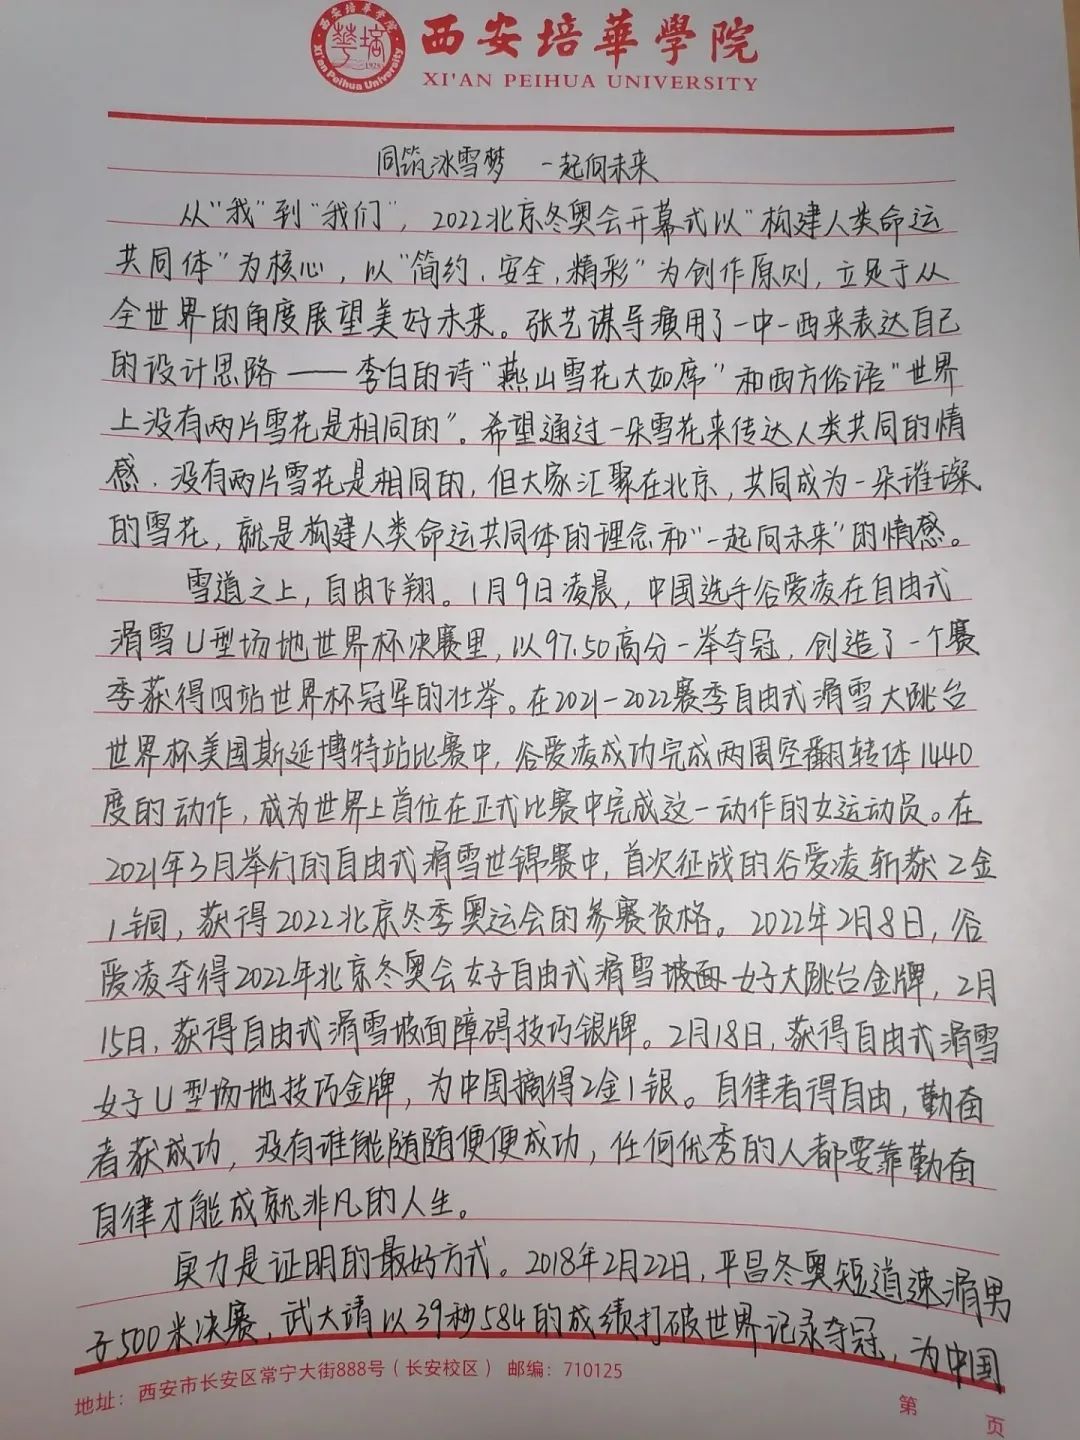 西安培華學院
XI'AN PEIHUA UNIVERSITY
西安培華学院
Xi'an Peihua University
1928
同筑冰雪梦 一起向未来
从“我”到“我们”，2022北京冬奥会开幕式以“构建人类命运
共同体”为核心，以“简约、安全，精彩”为创作原则，立足于从
全世界的角度展望美好未来。张艺谋导演用了一中一西来表达自己
的设计思路——李白的诗“燕山雪花大如席”和西方俗语“世界
上没有两片雪花是相同的”。希望通过一朵雪花来传达人类共同的情
感．没有两片雪花是相同的，但大家汇聚在北京，共同成为一朵璀璨
的雪花，就是构建人类命运共同体的理念和“一起向未来”的情感。
雪道之上，自由飞翔。1月9日凌晨，中国选手谷爱凌在自由式
滑雪U型场地世界杯决赛里，以97.50高分一举夺冠，创造了一个赛
季获得四站世界杯冠军的壮举。在2021-2022赛季自由式滑雪大跳台
世界杯美国斯延博特站比赛中，谷爱凌成功完成两周空翻转体1440
度的动作，成为世界上首位在正式比赛中完成这一动作的女运动员。在
2021年3月举行的自由式滑雪世锦赛中，首次征战的谷爱凌斩获2金
1铜，获得2022北京冬季奥运会的参赛资格。2022年2月8日，谷
爱凌夺得2022年北京冬奥会女子自由式滑雪坡面女子大跳台金牌，2月
15日，获得自由式滑雪坡面障碍技巧银牌。2月18日，获得自由式滑雪
女子U型场地技巧金牌，为中国摘得2金1银。自律者得自由，勤奋
者获成功，没有谁能随随便便成功，任何优秀的人都要靠勤奋
自律才能成就非凡的人生。
实力是证明的最好方式。2018年2月22日，平昌冬奥短道速滑男
子500米决赛，武大靖以39秒584的成绩打破世界记录夺冠，为中国
地址：西安市长安区常宁大街888号（长安校区） 邮编：710125
第 页